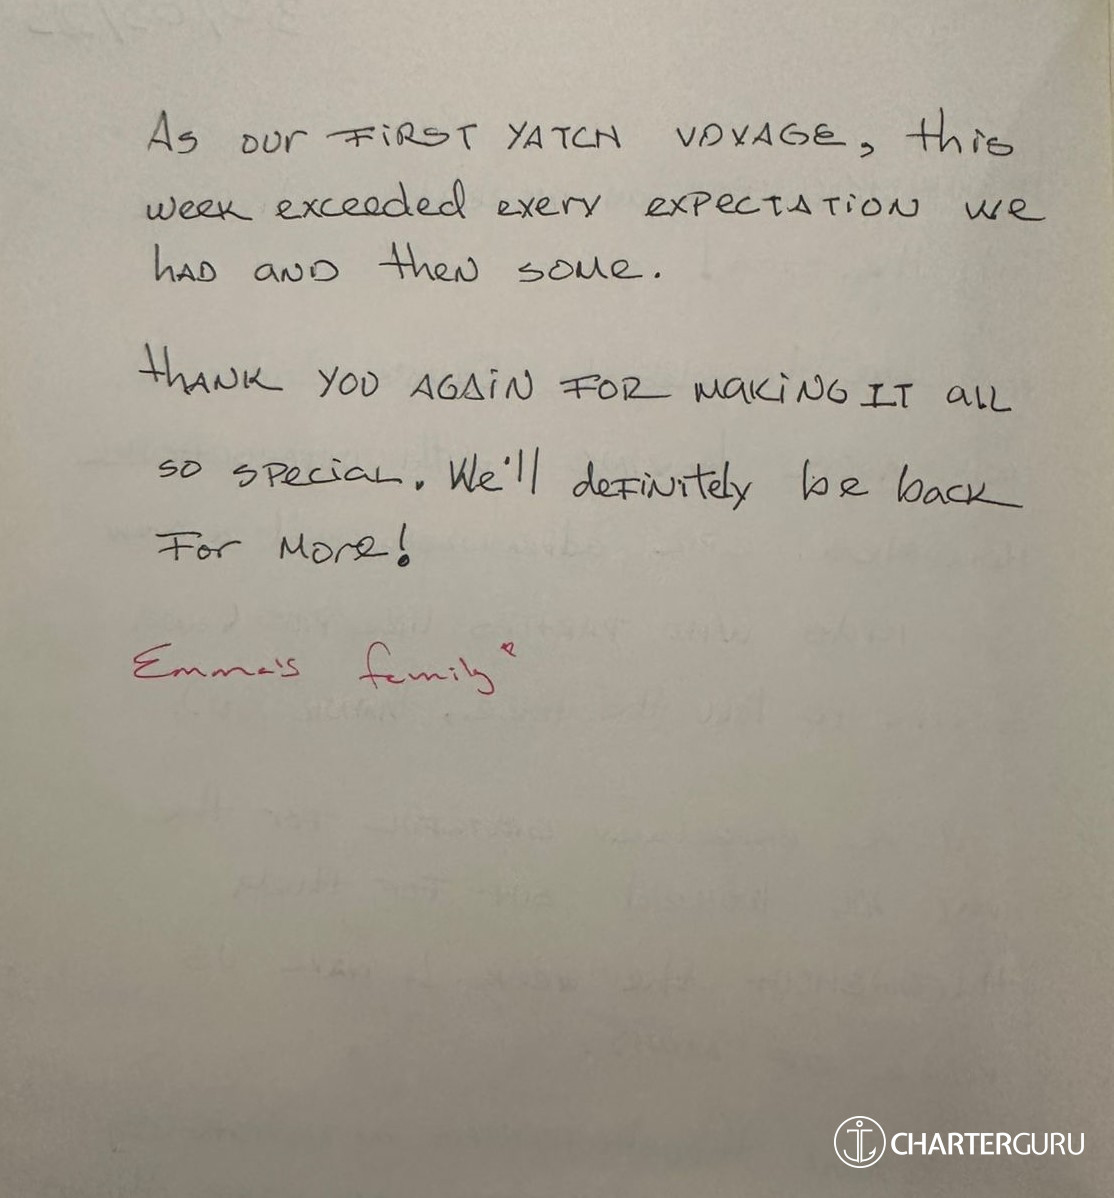 As our FIRST YATCH VOYAGE, this
week exceeded exery expectation we
had and then some.
thank you again for making it all
so special. We'll definitely be back
For More!
Emma's family
CHARTERGURU